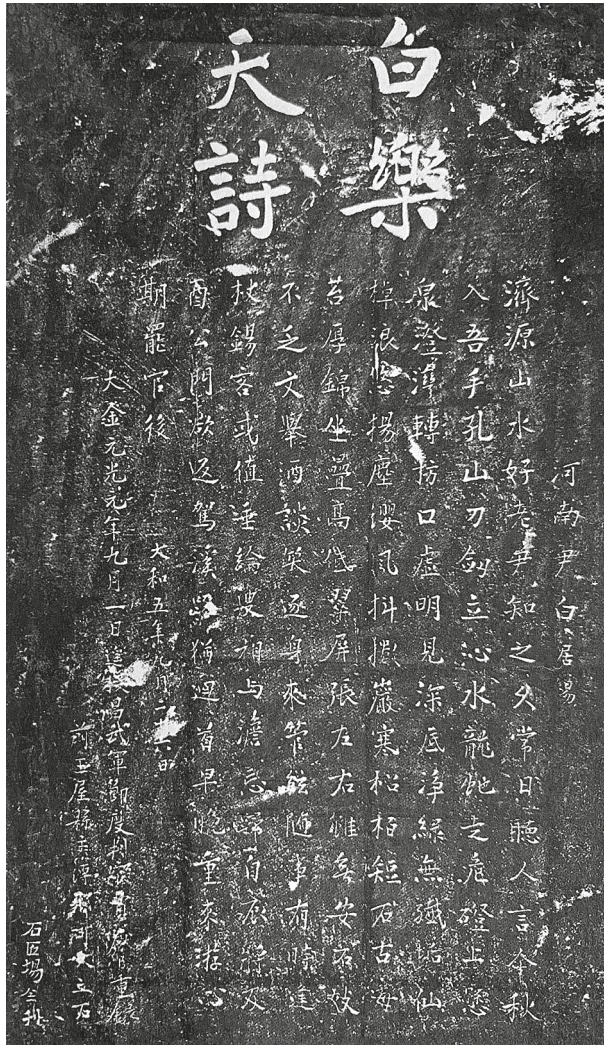 白樂
天詩
河南尹白居易
濟源山水好老尹知之久常日聽人言今秋
入吾手孔山刀劔立沁水龍虵走危磴上懸
泉澄灣轉坊口虛明見深底凈緑無纖垢仙
棹浪悠揚塵纓風抖擻巖寒松柏短石古莓
苔厚錦坐疊高低翠屏張左右雖無安石妓
不乏文舉酒談笑逐身來管絃隨事有時逢
杖錫客或值垂綸叟相与澹忘歸自辰將及
酉公門欲返駕溪路猶迴首早晚重來游心
期罷官後
大和五年九月日
大金元光元年九月一日昌武軍節度判官重録
前王屋縣立石
石匠楊刊